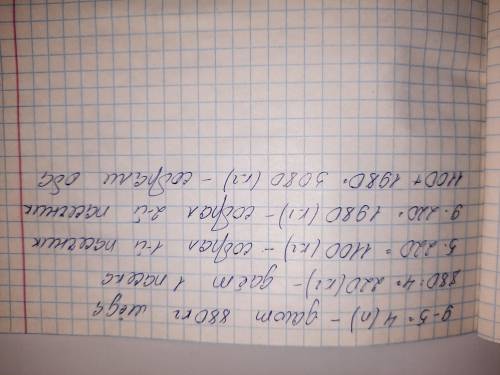 9-5=4(п) - дают 880кг мёда
880:4=220(кг) - даёт 1 пасека
5·220=1100(кг) - собрал 1-й пасечник
9·220=1980(кг) - собрал 2-й пасечник
1100+1980=3080(кг) - собрали оба